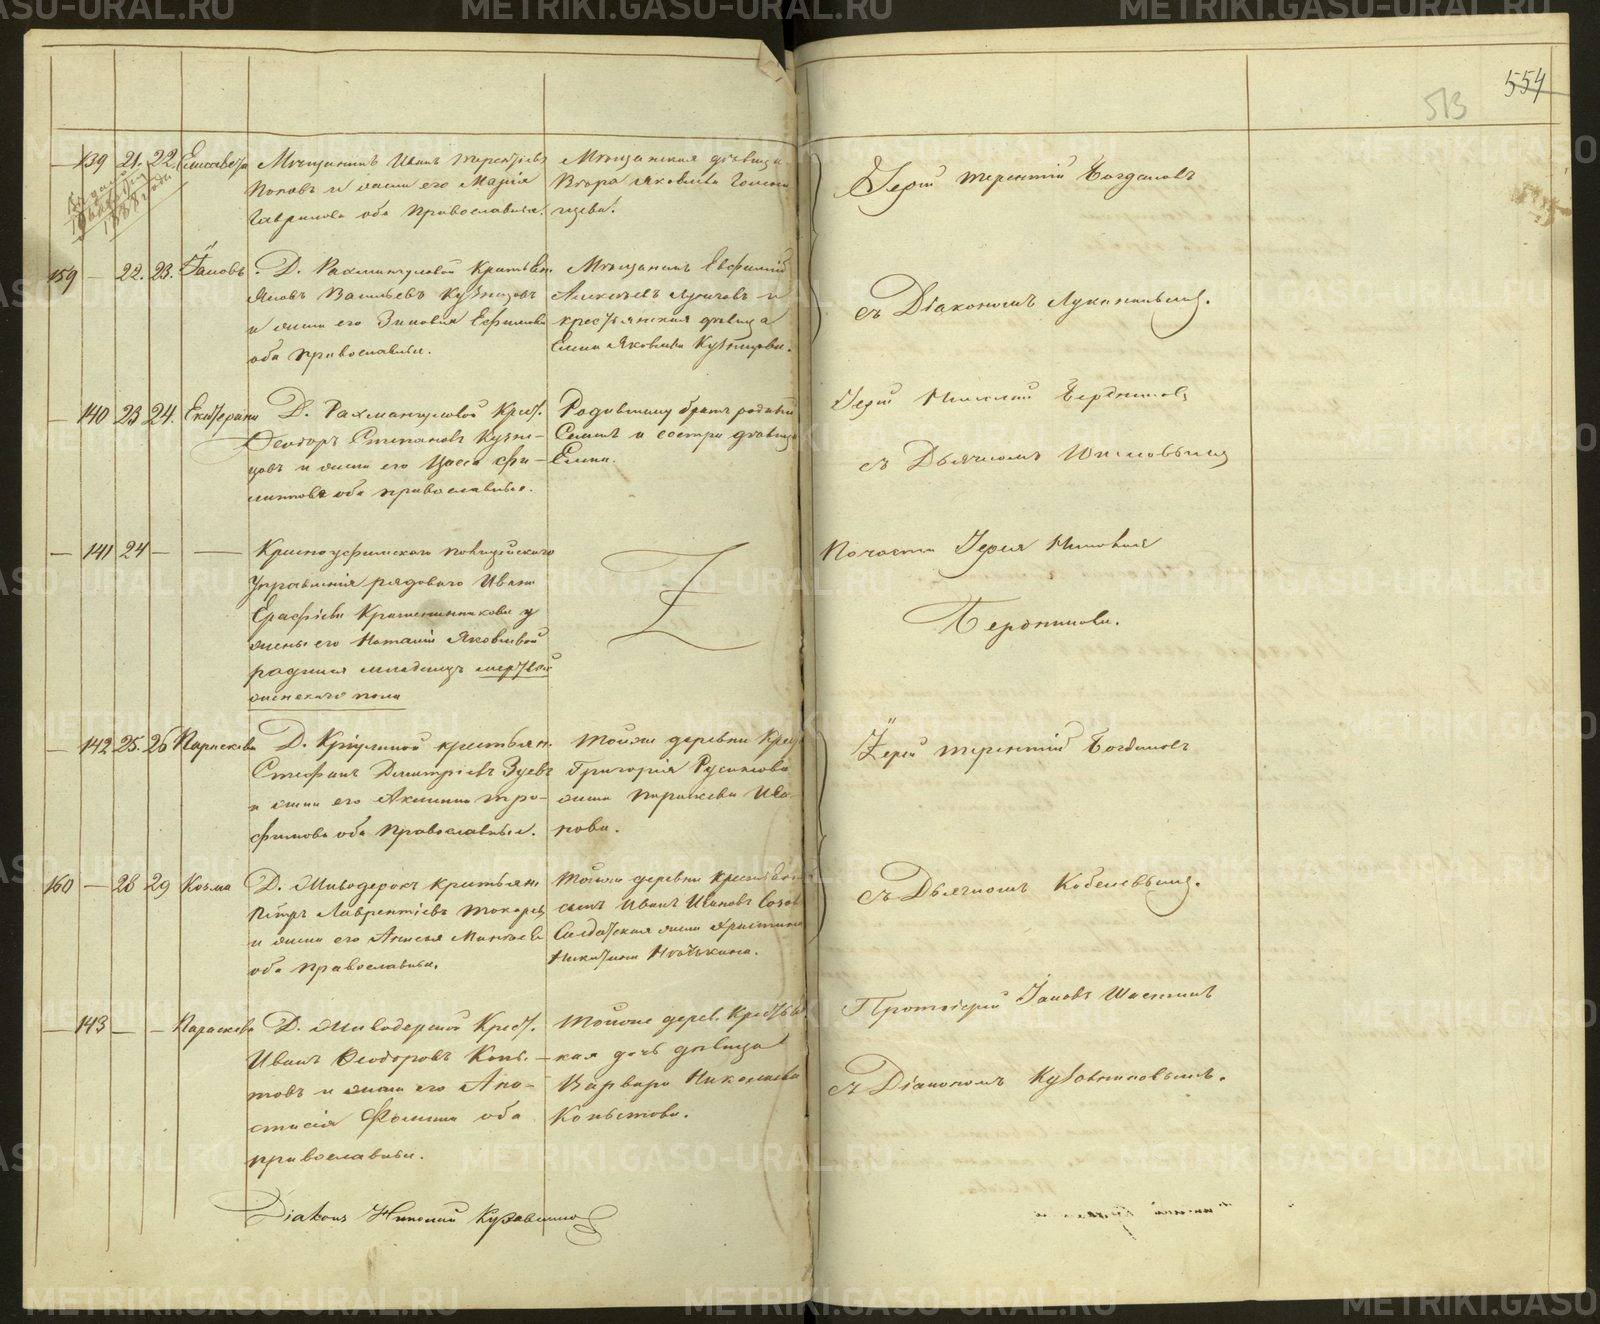 554
513
139 21. 22. Елисавета
Мѣщанинъ Иванъ Терентьевъ
Поповъ и жена его Марія
Гаврилова оба православные.
Мѣщанская дѣвица
Вѣра Яковлева
Іерей Терентій Богдановъ
159 — 22. 23. Іаковъ
Д. Рахмангуловой Крестьян.
Яковъ Васильевъ Кузнецовъ
и жена его Зиновія Ефимова
оба православные.
Мѣщанинъ Евфимій
Алексѣевъ Лузинъ и
крестьянская дѣвица
Елена Яковлева Кузнецова.
съ Діакономъ Луканинымъ.
— 140 23 24. Екатерина
Д. Рахмангуловой Крест.
Ѳеодоръ Степановъ Кузне-
цовъ и жена его
липпова оба православные.
Родившему братъ родный
и сестра дѣвица
Елена.
Іерей Николай Бердниковъ
съ Дьячкомъ
— 141 24 — —
Красноуфимскаго полицейскаго
Управленія рядоваго Ивана
Крашенинникова у
жены его Наталіи Яковлевой
родился младенецъ мертвый
женскаго пола
По части Іерея Николая
Бердникова.
— 142 25. 26 Параскева
Д. Криулиной крестьян.
Стефанъ Димитріевъ Зуевъ
и жена его Акилина Тро-
фимова оба православные.
Той же деревни Крест.
Григорія Русинова
жена Параскева Ива-
нова.
Іерей Терентій Богдановъ
160 — 28 29 Козма
Д. Живодерокъ крестьян.
Петръ Лаврентіевъ Токаревъ
и жена его Анисья
оба православные.
Той же деревни крестьян.
сынъ Иванъ Ивановъ
Солдатская жена Христина
Никитина
съ Дьячкомъ Кобелевымъ.
— 143 — — Параскева
Д. Живодерской Крест.
Иванъ Ѳеодоровъ Копы-
товъ и жена его Ана-
стасія Фомина оба
православные.
Той же дерев. Крестьян.
кая дочь дѣвица
Варвара Николаева
Копытова.
Протоіерей Іаковъ
съ Діакономъ Кузовниковымъ.
Діаконъ Николай Кузовниковъ
METRIKI.GASO-URAL.RU